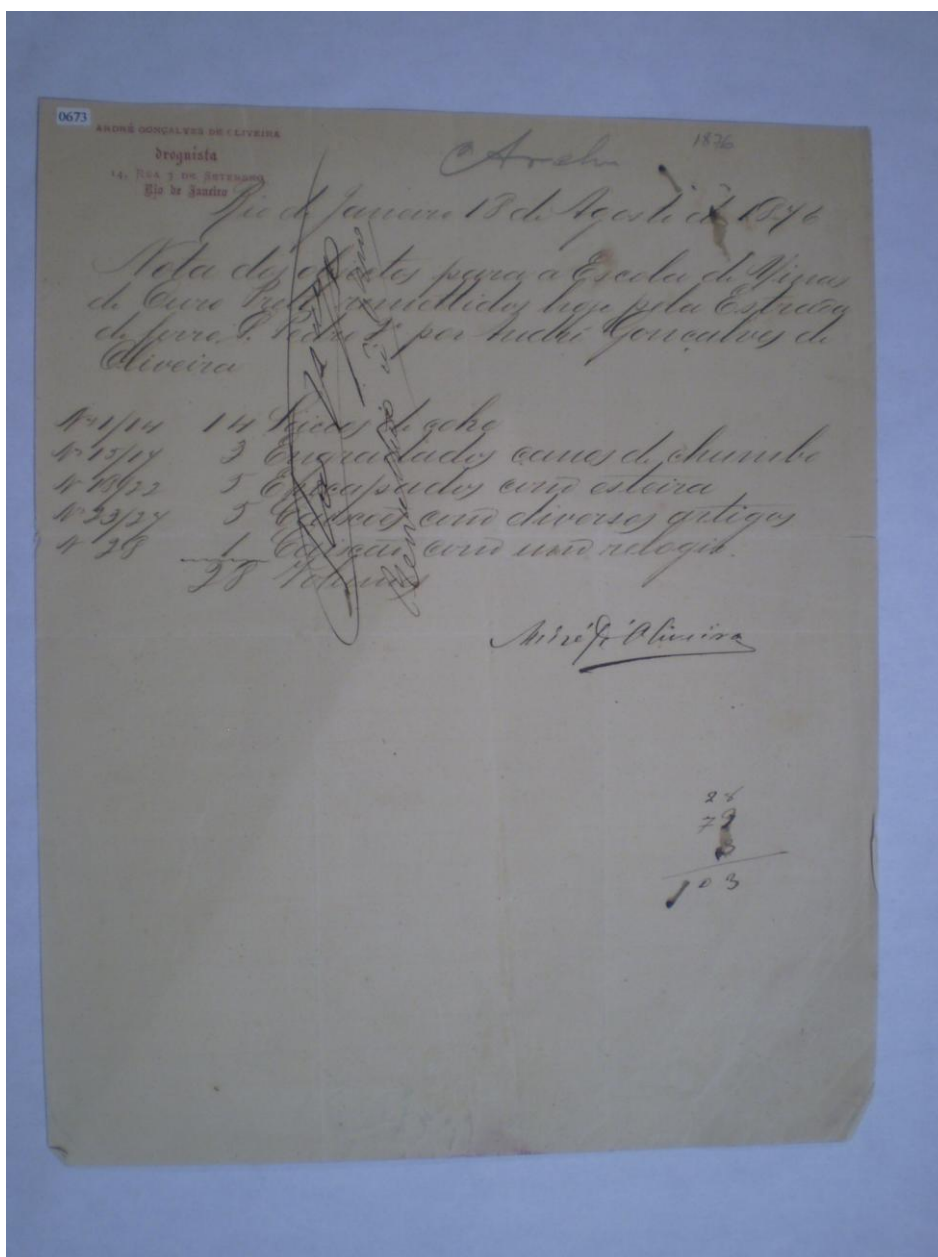 0673
ANDRÉ GONÇALVES DE OLIVEIRA
droguista
14, RUA 7 DE SETEMBRO
Rio de Janeiro
1876
Rio de Janeiro 18 de Agosto de 1876
Nota dos objectos para a Escola de Minas
de Ouro Preto remettidos hoje pela Estrada
de ferro D. Pedro 2º por André Gonçalves de
Oliveira
Nº 1/14 14 Saccos de coke
Nº 15/17 3 Engradados canos de chumbo
Nº 18/22 5 Encapados com esteira
Nº 23/27 5 com diversos artigos
Nº 28 1 Caixão com um relogio.
28 Volumes
André G. Oliveira
28
72
3
103